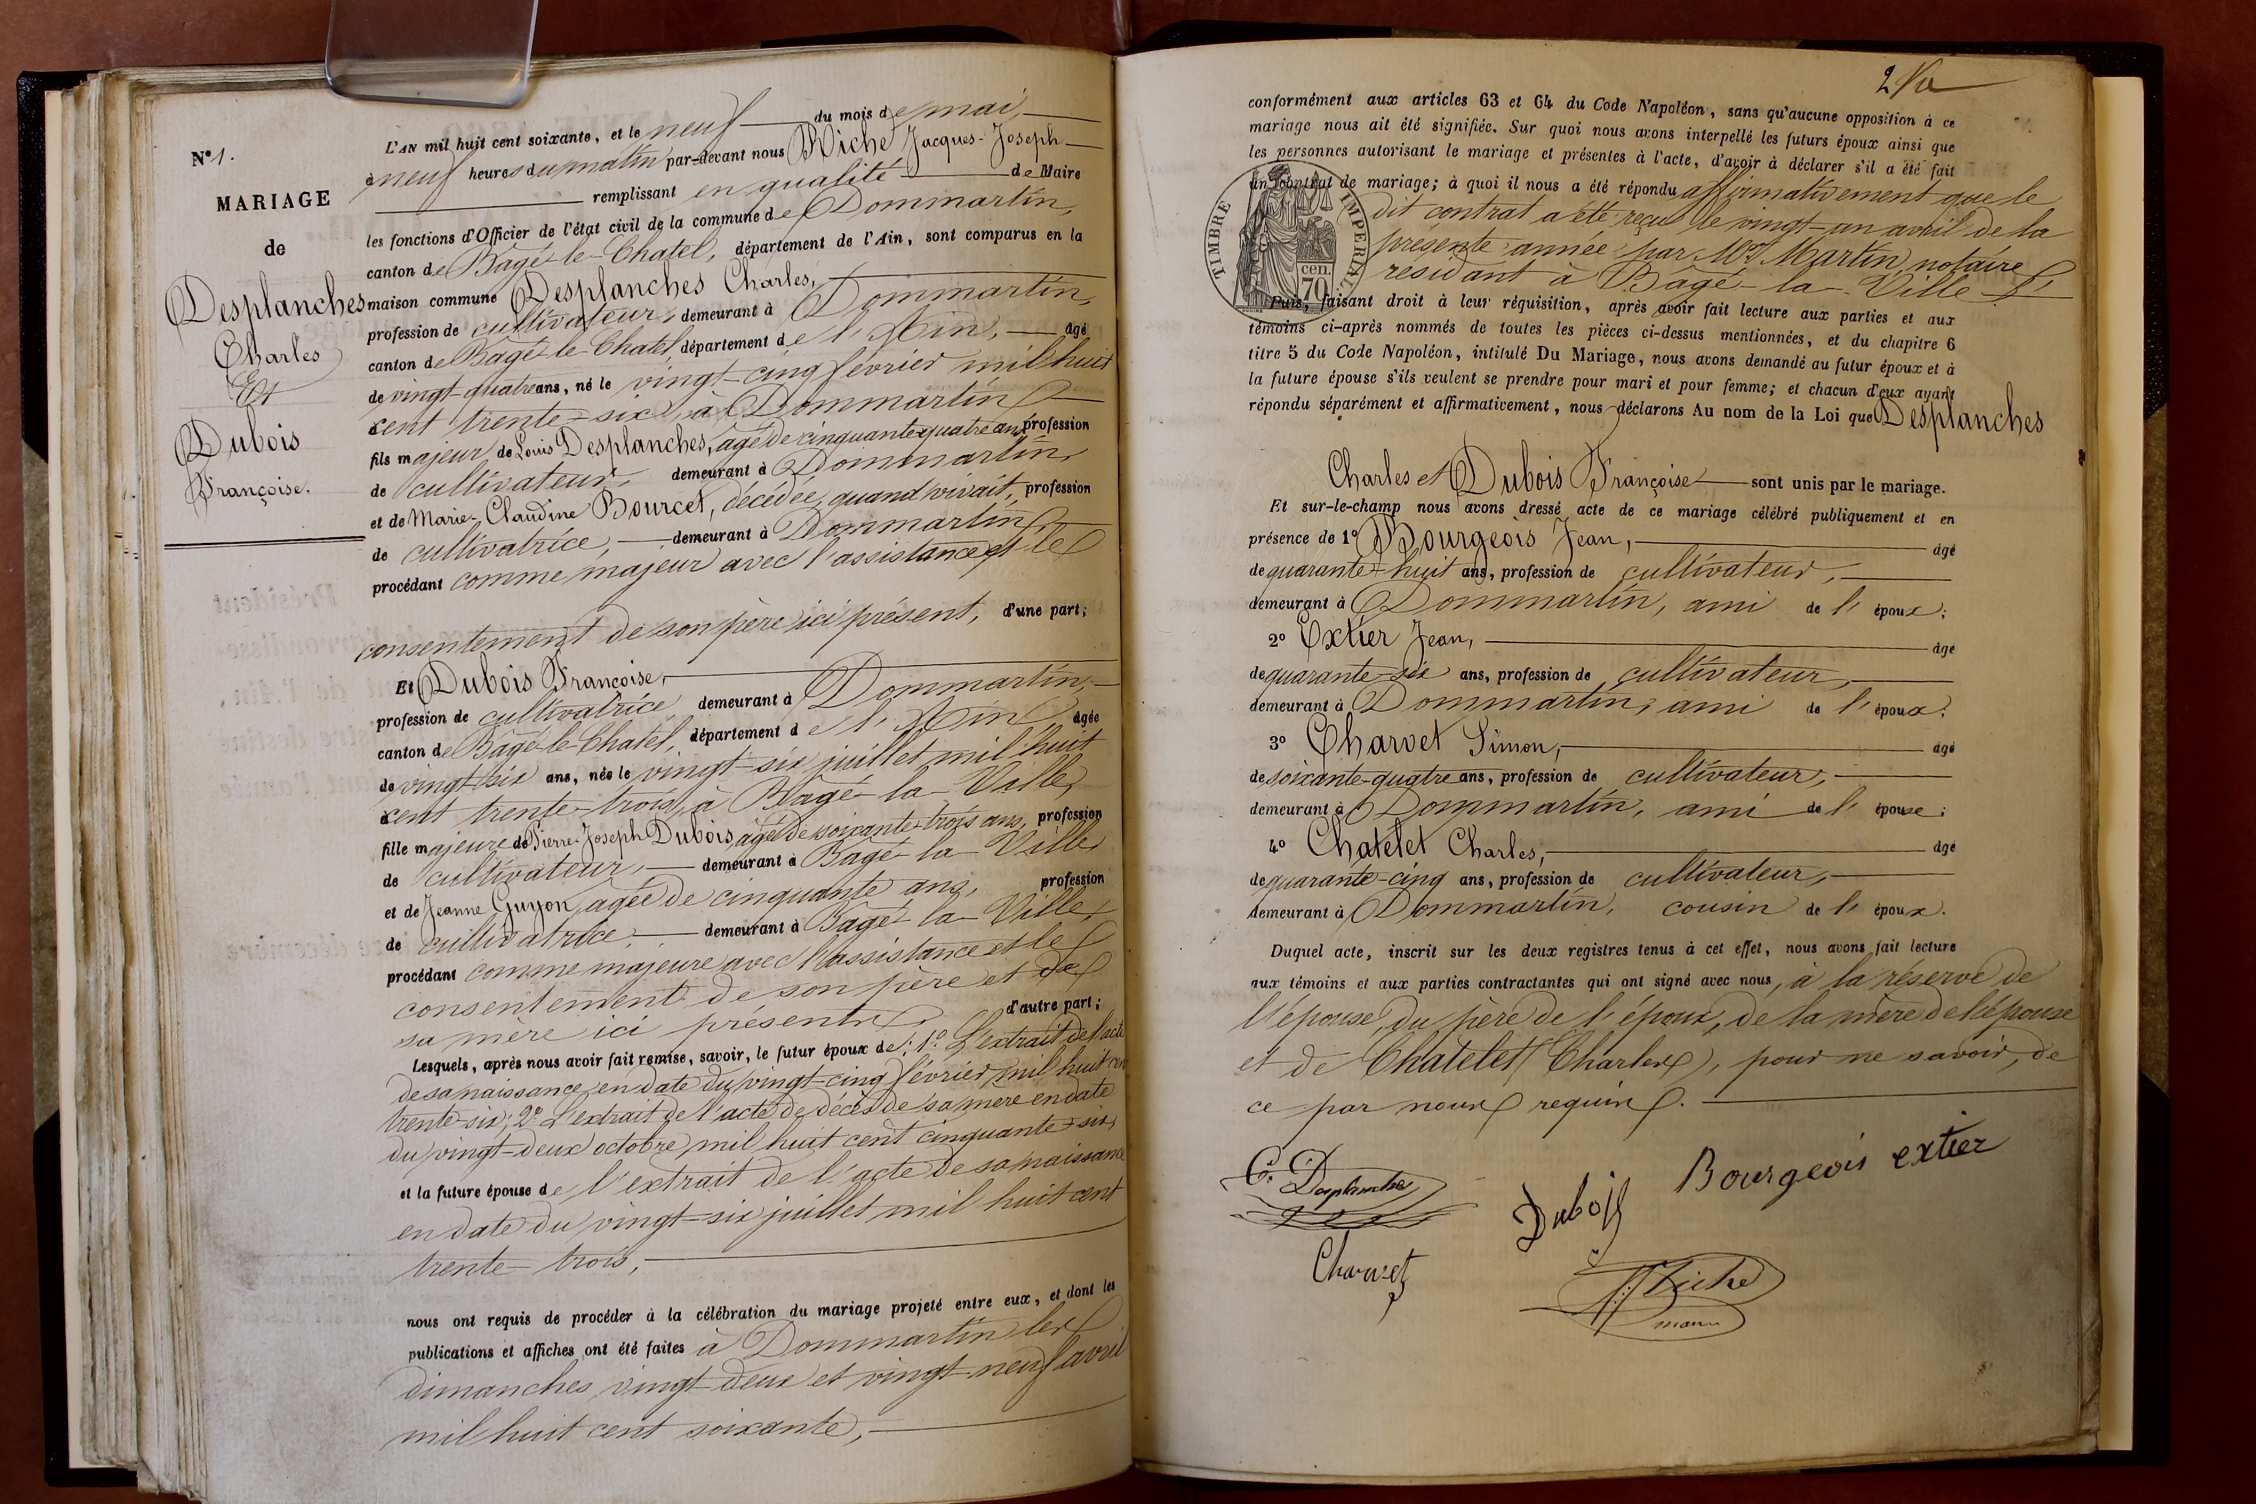 N° 1.
MARIAGE
de
Desplanches
Charles
Et
Dubois
Françoise.
L'AN mil huit cent soixante, et le neuf du mois de mai,
à neuf heures du matin par-devant nous Riche Jacques-Joseph
remplissant en qualité de Maire
les fonctions d'Officier de l'état civil de la commune de Dommartin,
canton de Bâgé-le-Chatel, département de l'Ain, sont comparus en la
maison commune Desplanches Charles,
profession de cultivateur, demeurant à Dommartin,
canton de Bâgé-le-Chatel, département de l'Ain, âgé
de vingt-quatre ans, né le vingt-cinq février mil huit
cent trente-six, à Dommartin
fils majeur de Louis Desplanches, âgé de cinquante-quatre ans, profession
de cultivateur, demeurant à Dommartin,
et de Marie-Claudine Bourcet, décédée, quand vivait, profession
de cultivatrice, demeurant à Dommartin,
procédant comme majeur avec l'assistance et le
consentement de son père ici présent, d'une part;
Et Dubois Françoise,
profession de cultivatrice demeurant à Dommartin,
canton de Bâgé-le-Chatel, département de l'Ain âgée
de vingt-six ans, née le vingt-six juillet mil huit
cent trente-trois, à Bâgé-la-Ville,
fille majeure de Pierre-Joseph Dubois, âgé de soixante-trois ans, profession
de cultivateur, demeurant à Bâgé-la-Ville,
et de Jeanne Guyon, âgée de cinquante ans, profession
de cultivatrice, demeurant à Bâgé-la-Ville,
procédant comme majeure avec l'assistance et le
consentement de son père et de
sa mère ici présents, d'autre part;
Lesquels, après nous avoir fait remise, savoir, le futur époux de: 1° L'extrait de l'acte
de sa naissance, en date du vingt-cinq février mil huit cent
trente-six; 2° L'extrait de l'acte de décès de sa mère en date
du vingt-deux octobre mil huit cent cinquante-six,
et la future épouse de l'extrait de l'acte de sa naissance
en date du vingt-six juillet mil huit cent
trente-trois,
nous ont requis de procéder à la célébration du mariage projeté entre eux, et dont les
publications et affiches ont été faites à Dommartin les
dimanches vingt-deux et vingt-neuf avril
mil huit cent soixante,
conformément aux articles 63 et 64 du Code Napoléon, sans qu'aucune opposition à ce
mariage nous ait été signifiée. Sur quoi nous avons interpellé les futurs époux ainsi que
les personnes autorisant le mariage et présentes à l'acte, d'avoir à déclarer s'il a été fait
un contrat de mariage; à quoi il nous a été répondu affirmativement que le
dit contrat a été reçu le vingt-un avril de la
présente année par Me Martin, notaire
résidant à Bâgé-la-Ville
TIMBRE IMPERIAL
70 cen.
Puis, faisant droit à leur réquisition, après avoir fait lecture aux parties et aux
témoins ci-après nommés de toutes les pièces ci-dessus mentionnées, et du chapitre 6
titre 5 du Code Napoléon, intitulé Du Mariage, nous avons demandé au futur époux et à
la future épouse s'ils veulent se prendre pour mari et pour femme; et chacun d'eux ayant
répondu séparément et affirmativement, nous déclarons Au nom de la Loi que Desplanches
Charles et Dubois Françoise sont unis par le mariage.
Et sur-le-champ nous avons dressé acte de ce mariage célébré publiquement et en
présence de 1° Bourgeois Jean, âgé
de quarante-huit ans, profession de cultivateur,
demeurant à Dommartin, ami de l'époux;
2° Extier Jean, âgé
de quarante-six ans, profession de cultivateur,
demeurant à Dommartin, ami de l'époux;
3° Charvet Simon, âgé
de soixante-quatre ans, profession de cultivateur,
demeurant à Dommartin, ami de l'épouse;
4° Chatelet Charles, âgé
de quarante-cinq ans, profession de cultivateur,
demeurant à Dommartin, cousin de l'époux.
Duquel acte, inscrit sur les deux registres tenus à cet effet, nous avons fait lecture
aux témoins et aux parties contractantes qui ont signé avec nous, à la réserve de
l'épouse, du père de l'époux, de la mère de l'épouse
et de Chatelet (Charles), pour ne savoir, de
ce par nous requis.
C. Desplanches
Dubois
Bourgeois extier
Charvet
Riche
maire